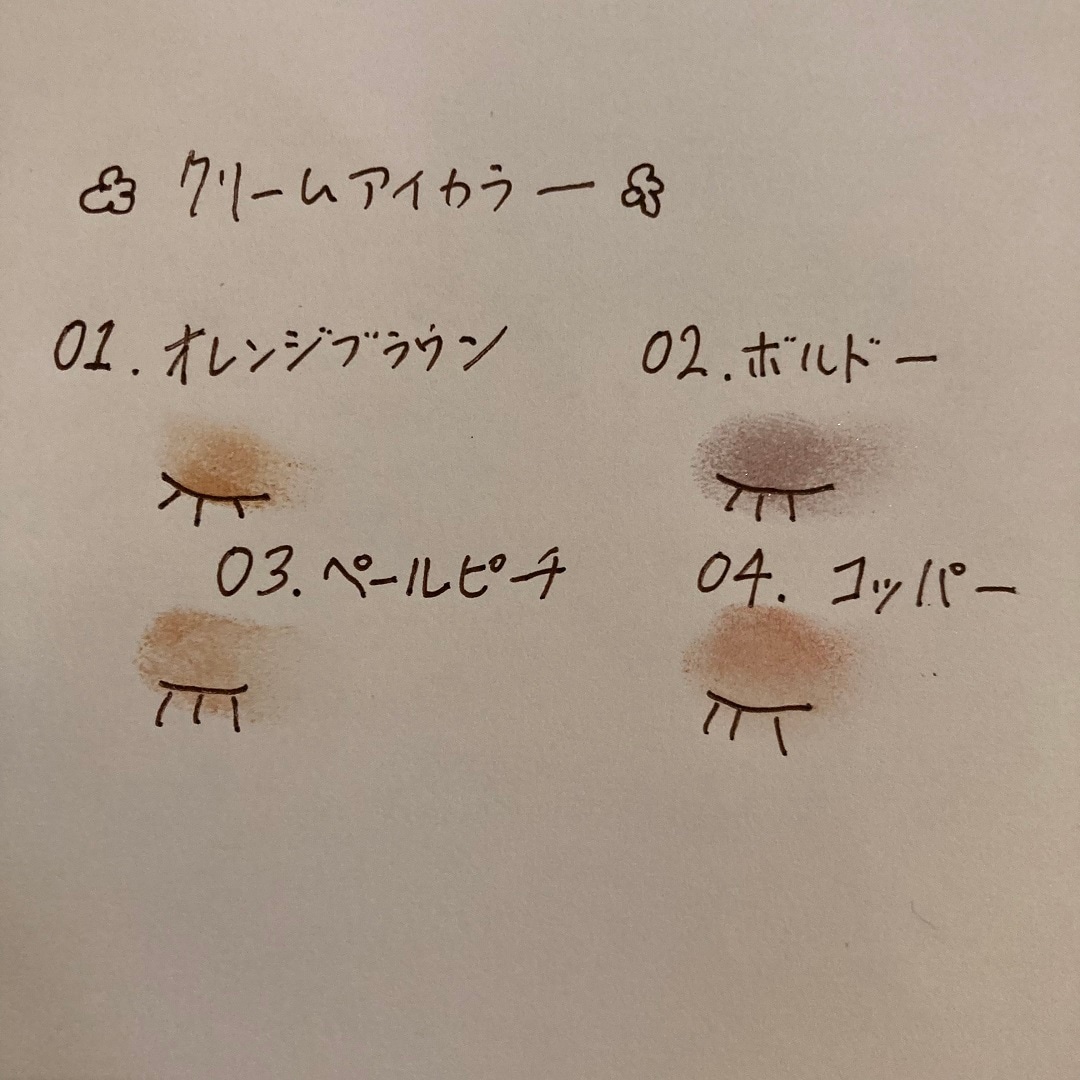 クリームアイカラー
01. オレンジブラウン
02. ボルドー
03. ペールピーチ
04. コッパー